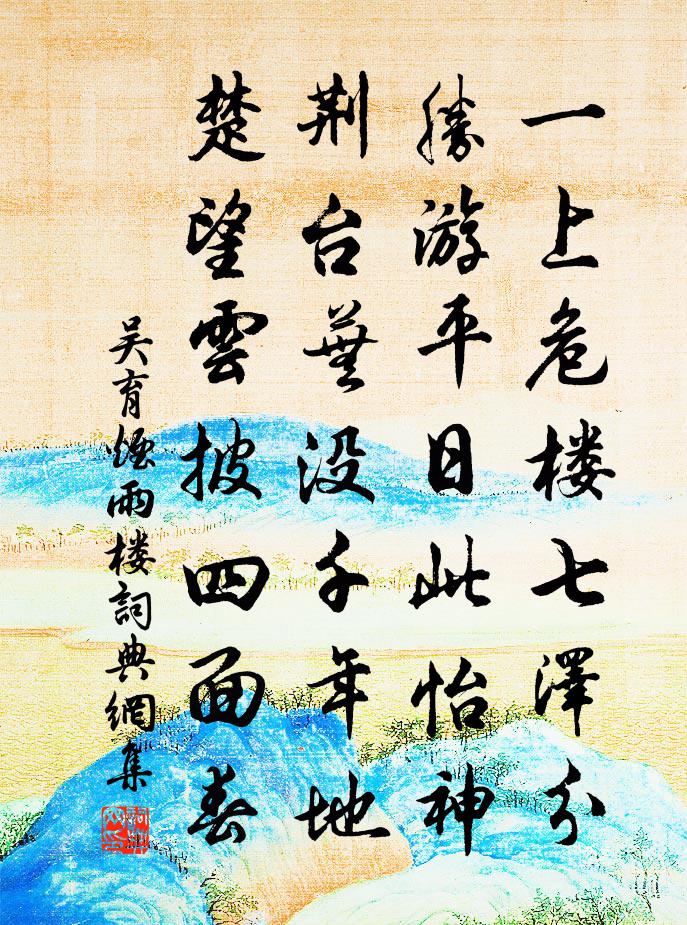 一上危楼七澤分
勝游平日此怡神
荆台蕪没千年地
楚望雲披四面春
吴育煙雨楼詞典網集